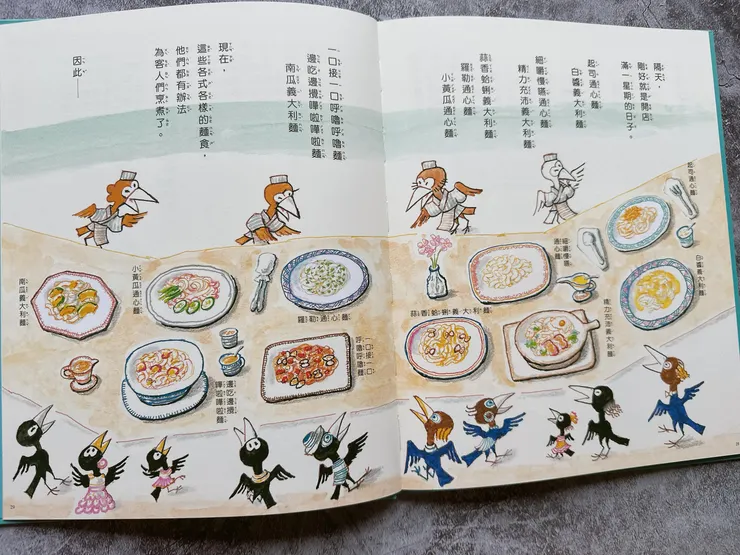 隔天，
剛好就是開店
滿一星期的日子。
起司通心麵
白醬義大利麵
細嚼慢嚥通心麵
精力充沛義大利麵
蒜香蛤蜊義大利麵
羅勒通心麵
小黃瓜通心麵
起司通心麵
白醬義大利麵
細嚼慢嚥
通心麵
精力充沛義大利麵
蒜香蛤蜊義大利麵
一口接一口呼嚕呼嚕麵
邊吃邊攪嘩啦嘩啦麵
南瓜義大利麵
現在，
這些各式各樣的麵食，
他們都有辦法
為客人們烹煮了。
因此——
一口接一口
呼嚕呼嚕麵
羅勒通心麵
邊吃邊攪
嘩啦嘩啦麵
小黃瓜通心麵
南瓜義大利麵